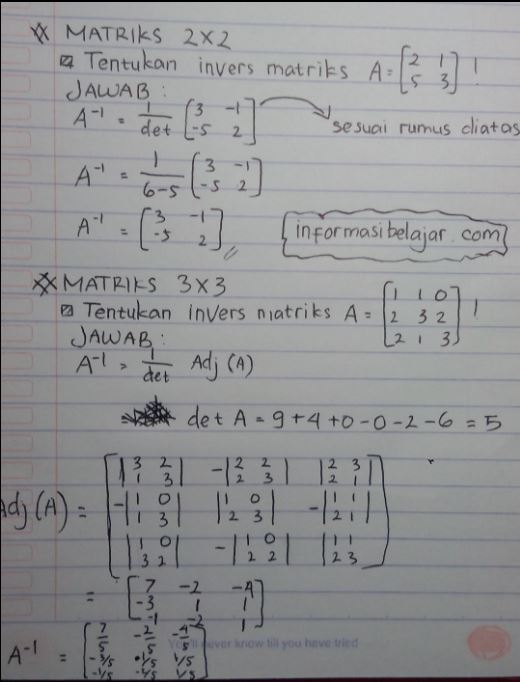 MATRIKS 2x2
Tentukan invers matriks A = [2 1; 5 3] !
JAWAB :
A⁻¹ = 1/det [3 -1; -5 2] → sesuai rumus diatas
A⁻¹ = 1/(6-5) [3 -1; -5 2]
A⁻¹ = [3 -1; -5 2] //
informasibelajar.com
MATRIKS 3x3
Tentukan invers matriks A = [1 1 0; 2 3 2; 2 1 3] !
JAWAB :
A⁻¹ = 1/det Adj (A)
det A = 9+4+0-0-2-6 = 5
Adj (A) = [|3 2; 1 3| -|2 2; 2 3| |2 3; 2 1|; -|1 0; 1 3| |1 0; 2 3| -|1 1; 2 1|; |1 0; 3 2| -|1 0; 2 2| |1 1; 2 3|]
= [7 -2 -4; -3 1 1; -1 -2 1]
You'll never know till you have tried
A⁻¹ = [7/5 -2/5 -4/5; -3/5 1/5 1/5; -1/5 -2/5 1/5]